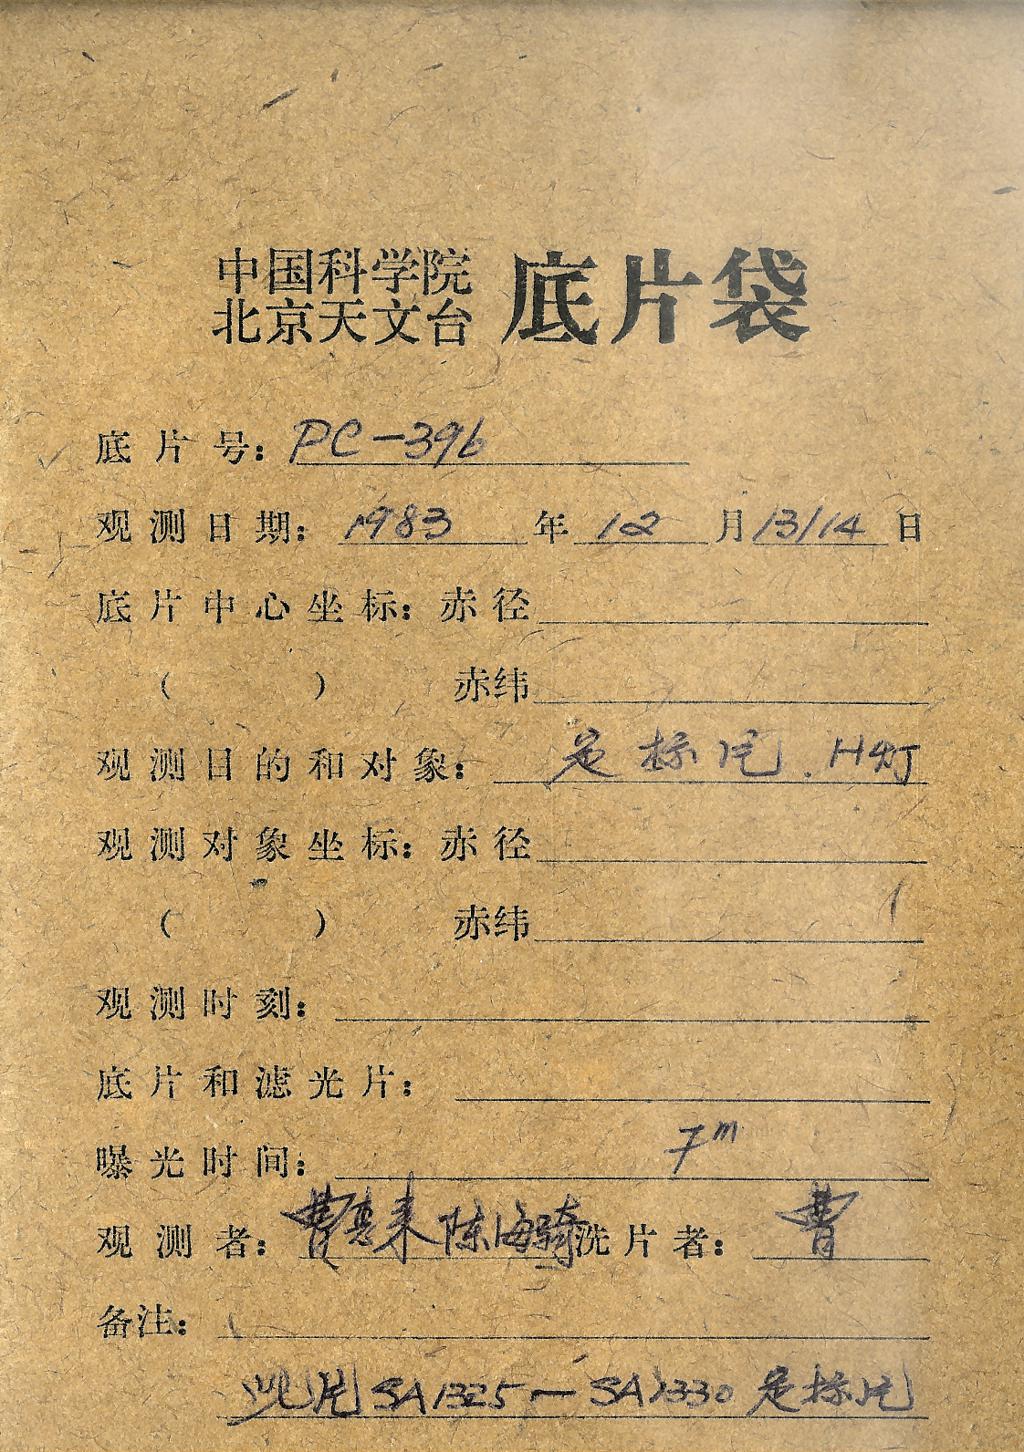 中国科学院
北京天文台 底片袋
底片号: PC-396
观测日期: 1983 年 12 月 13/14 日
底片中心坐标: 赤径
( ) 赤纬
观测目的和对象: 定标片. H灯
观测对象坐标: 赤径
( ) 赤纬
观测时刻:
底片和滤光片:
曝光时间: 7m
观测者: 曹惠来 陈海骑 洗片者: 曹
备注:
此片 SA1325—SA1330 定标片